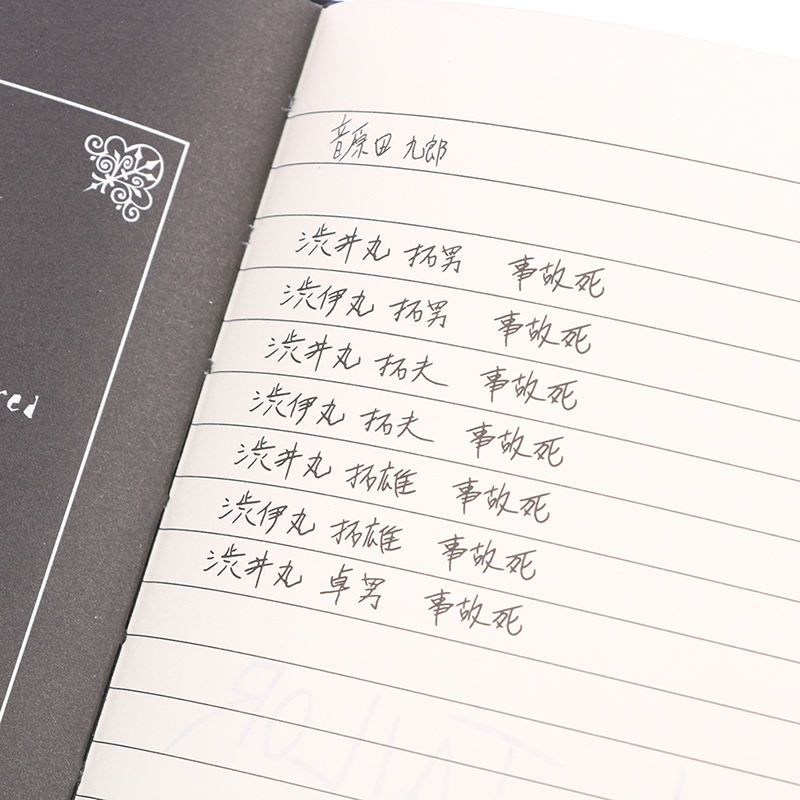 red
音原田 九郎
渋井丸 拓男 事故死
渋伊丸 拓男 事故死
渋井丸 拓夫 事故死
渋伊丸 拓夫 事故死
渋井丸 拓雄 事故死
渋伊丸 拓雄 事故死
渋井丸 卓男 事故死